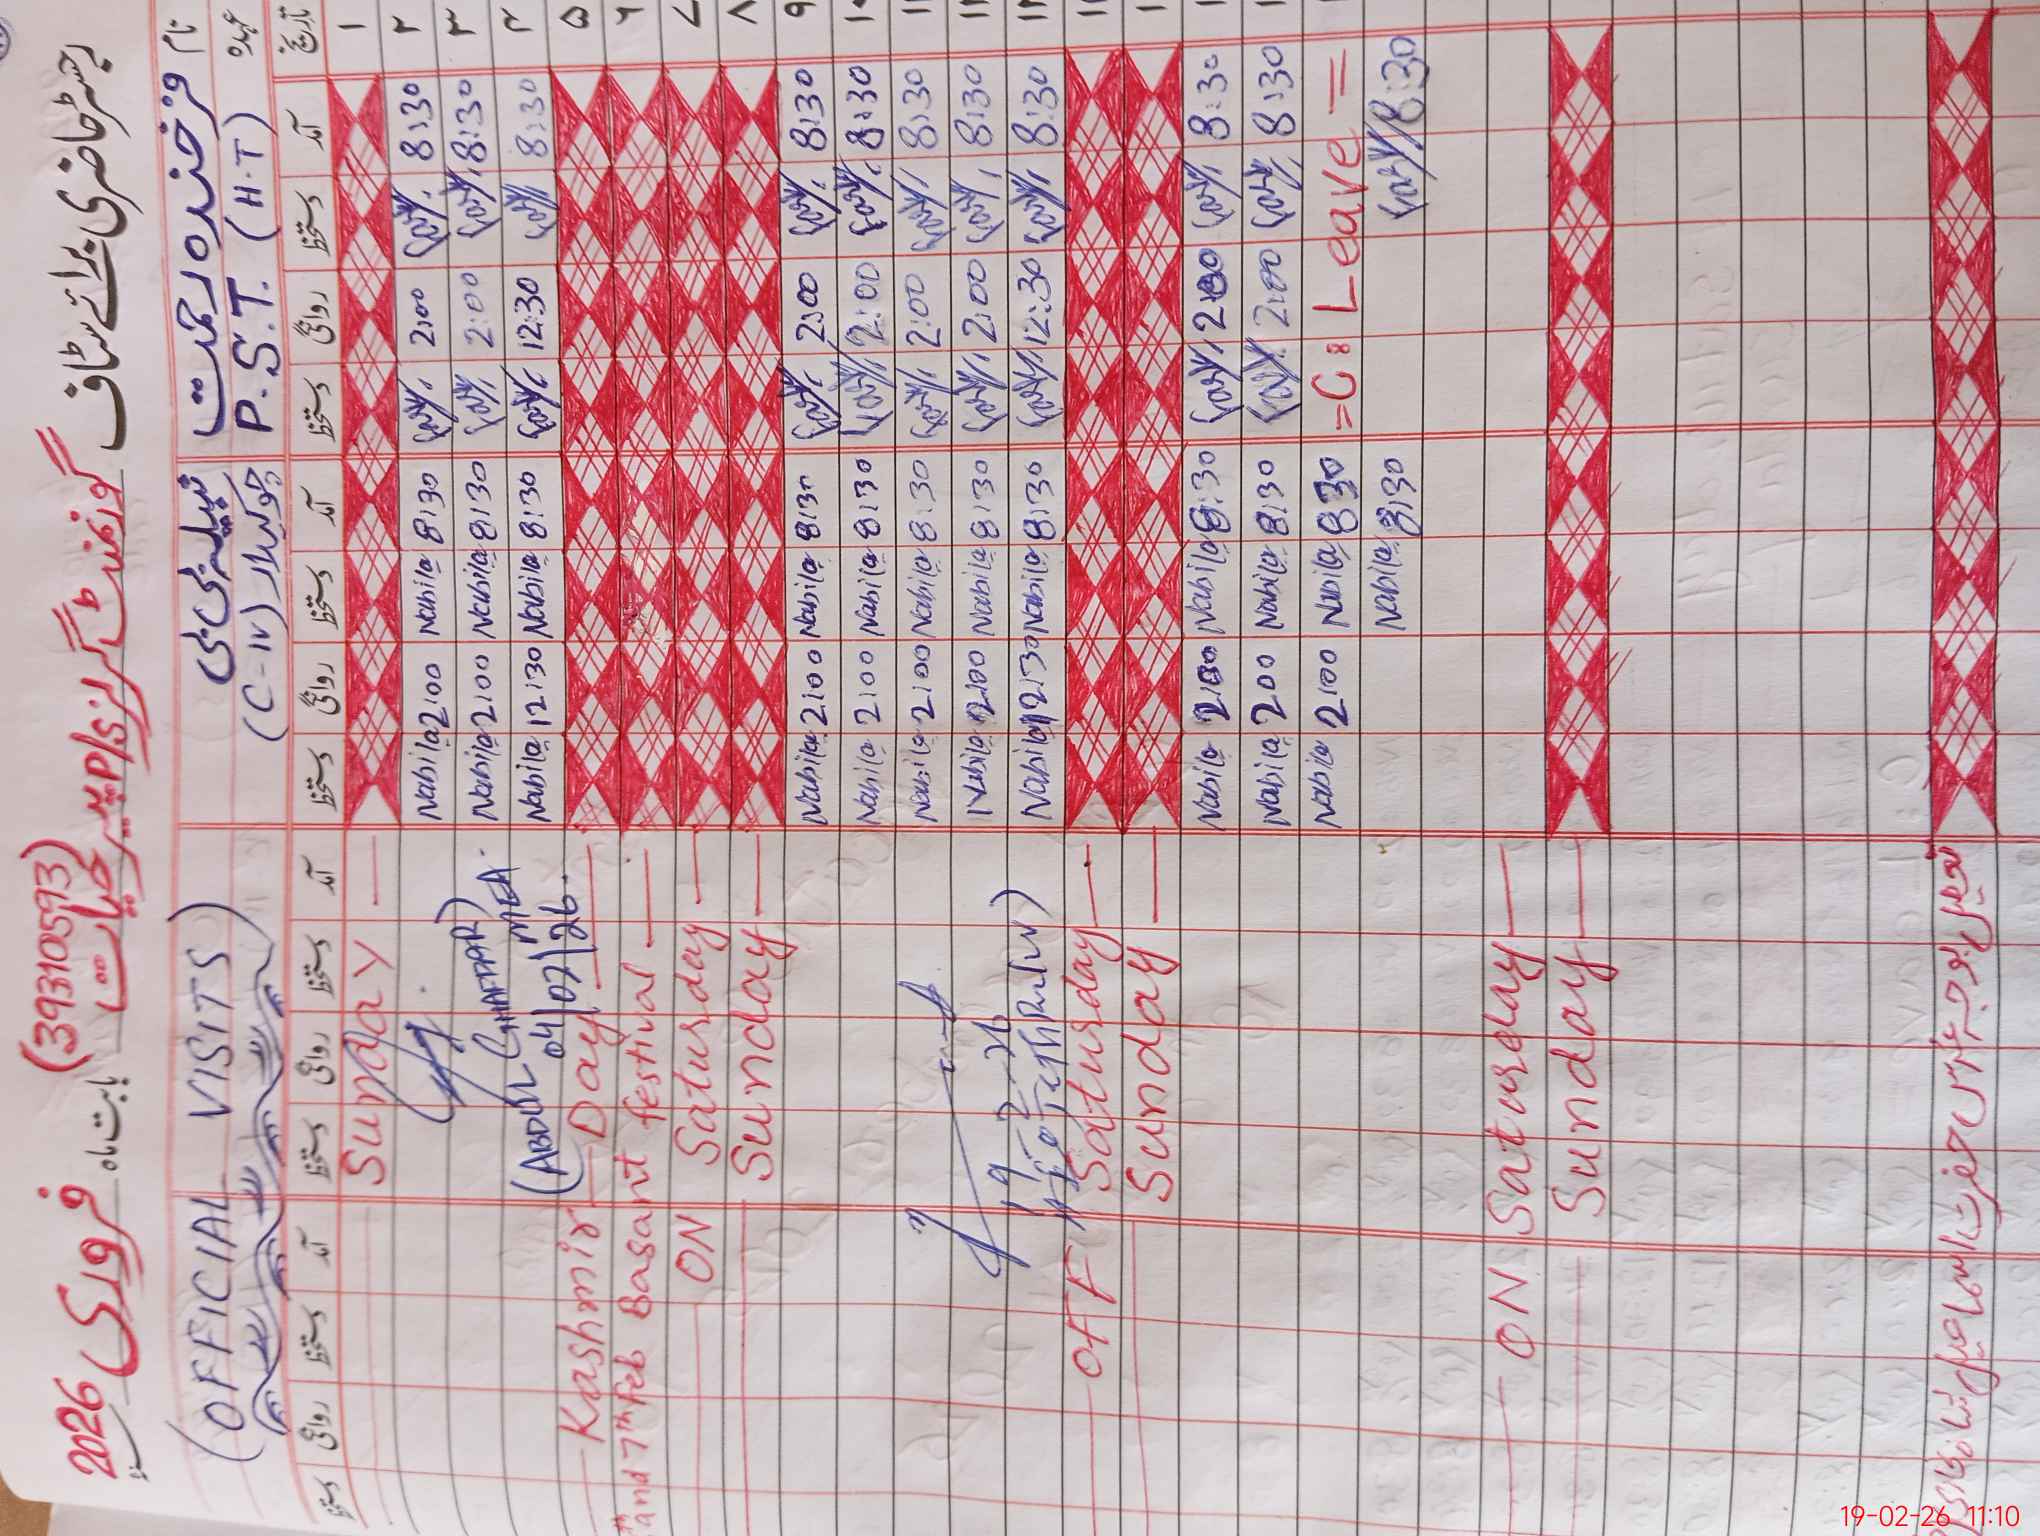 رجسٹر حاضری برائے سٹاف گورنمنٹ گرلز P/S پیر حیات (39310593) بابت ماہ فروری 2026
نام فرخندہ رحمت نبیلہ بی بی (OFFICIAL VISITS)
عہدہ P.S.T. (H.T) چوکیدار (C-IV)
تاریخ آمد دستخط روانگی دستخط آمد دستخط روانگی دستخط آمد دستخط روانگی دستخط آمد دستخط روانگی دستخط
۱ Sunday
۲ 8:30 2:00 8:30 Nabila 2:00 Nabila
۳ 8:30 2:00 8:30 Nabila 2:00 Nabila (ABDUL GHAFFAR)
۴ 8:30 12:30 8:30 Nabila 12:30 Nabila MEA 04/02/26
۵ Kashmir Day
۶ and 7th Feb Basant festival
۷ ON Saturday
۸ Sunday
۹ 8:30 2:00 8:30 Nabila 2:00 Nabila
8:30 2:00 8:30 Nabila 2:00 Nabila
8:30 2:00 8:30 Nabila 2:00 Nabila
8:30 2:00 8:30 Nabila 2:00 Nabila
8:30 12:30 8:30 Nabila 12:30 Nabila
OFF Saturday
Sunday
8:30 2:00 8:30 Nabila 2:00 Nabila
8:30 2:00 8:30 Nabila 2:00 Nabila
=C: Leave= 8:30 Nabila 2:00 Nabila
8:30 8:30 Nabila
ON Saturday
Sunday
19-02-26 11:10